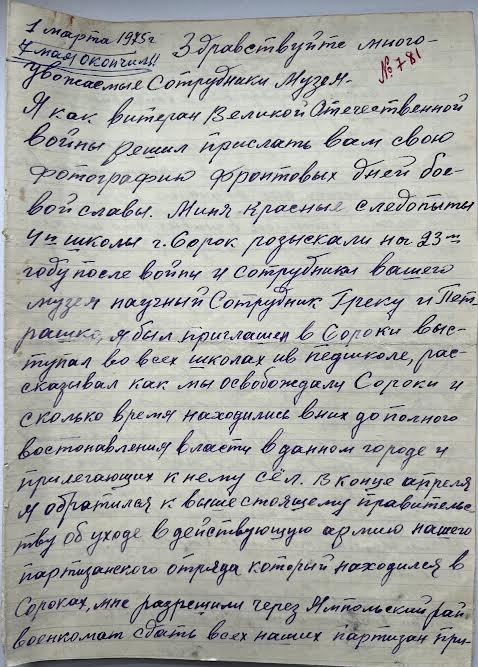 1 марта 1975 г
4 мая окончил!! Здравствуйте много-
№ 781
уважаемые Сотрудники Музея.
Я как витеран Великой Отечественной
войны решил прислать вам свою
фотографию фронтовых дней бое-
вой славы. Миня Красные следопыты
4й школы г. Сорок розыскали на 23м
году после войны и сотрудники вашего
музея научный Сотрудник Греку и Пет-
рашко, я был приглашен в Сороки выс-
тупал во всех школах ив педшколе, рас-
сказивал как мы освобождали Сороки и
сколько время находились вних до полного
востонавления власти вданном городе и
прилегающих к нему сёл. в конце апреля
я обратился к вышестоящему правительс-
тву об уходе в действующую армию нашего
партизанского отряда который находился в
Сороках, мне разрешили через Ямпольский рай
военкомат сдать всех наших партизан при-